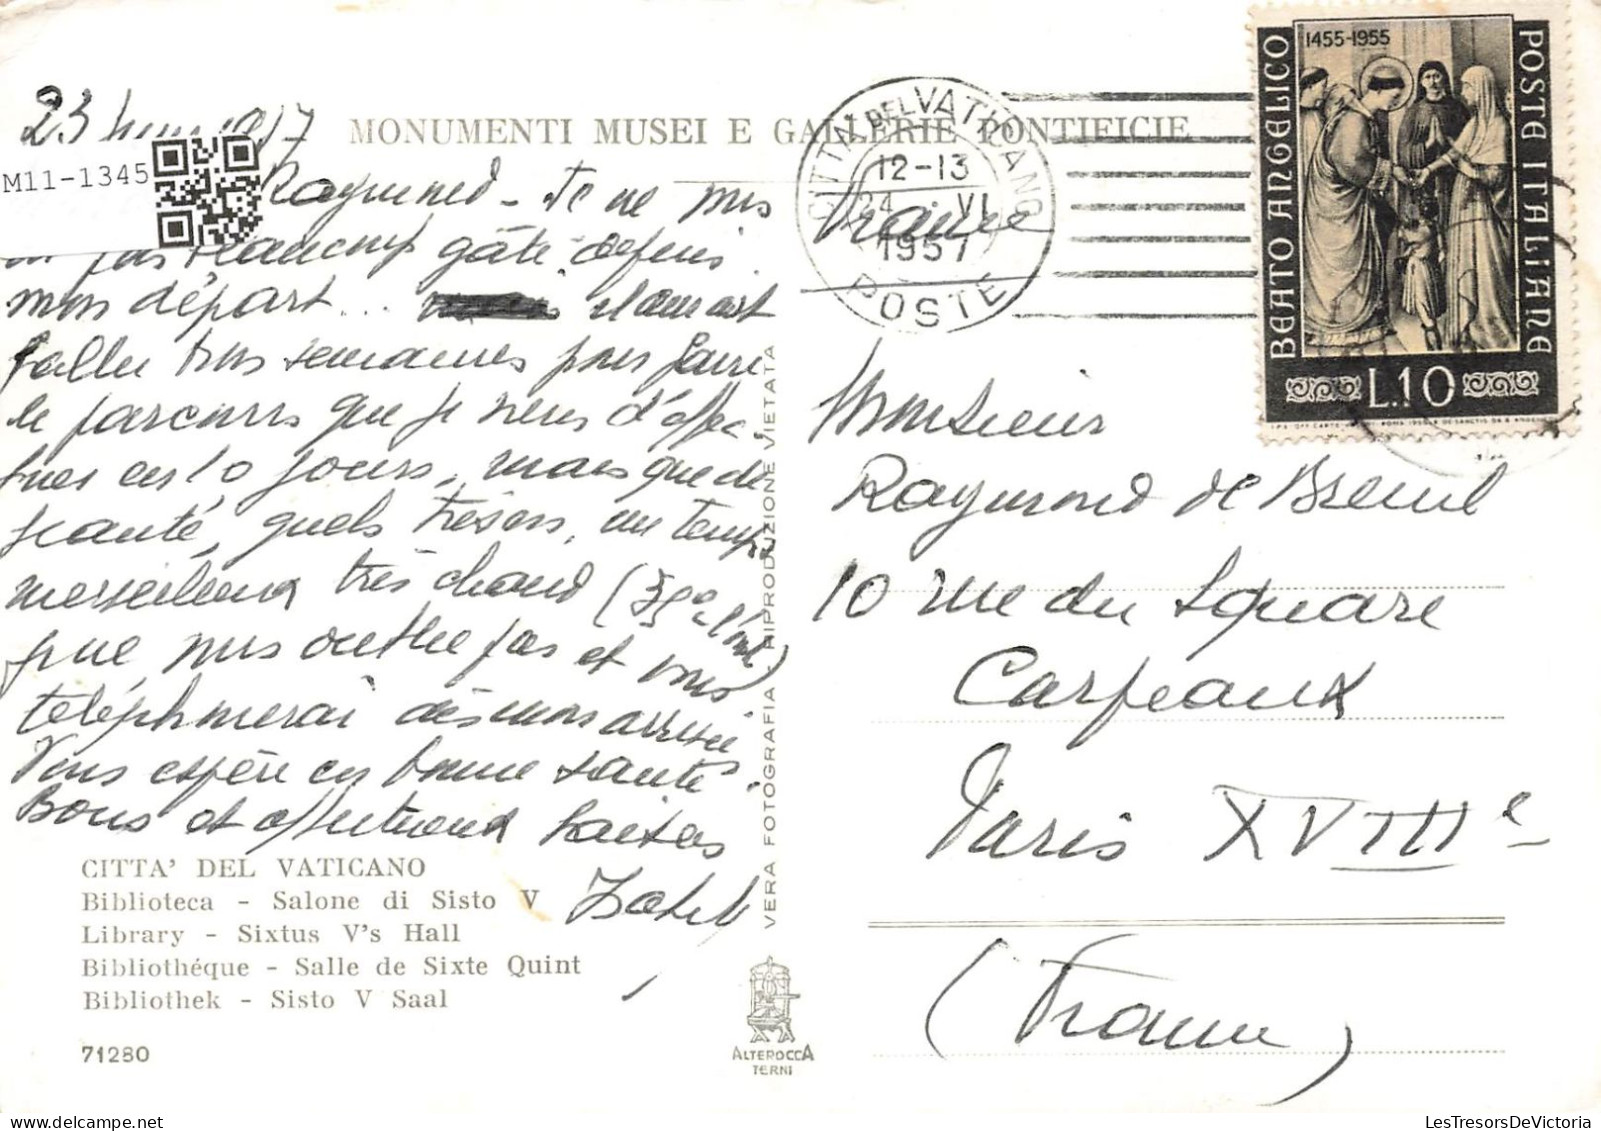 23 juin 1957
MONUMENTI MUSEI E GALLERIE PONTIFICIE
M11-1345
Raymond - Je ne vous
ai pas beaucoup gâté depuis
mon départ... il aurait
fallu trois semaines pour faire
le parcours que je viens d'effec
tuer en 10 jours, mais que de
beauté, quels trésors, un temps
merveilleux très chaud (35° à l'ombre)
que vous oublie pas et vous
téléphonerai dès mon arrivée
Vous espère en bonne santé.
Bons et affectueux baisers
CITTA' DEL VATICANO
Biblioteca - Salone di Sisto V
Library - Sixtus V's Hall
Bibliothéque - Salle de Sixte Quint
Bibliothek - Sisto V Saal
71280
VERA FOTOGRAFIA RIPRODUZIONE VIETATA
ALTEROCCA
TERNI
CITTA DEL VATICANO
12-13
24 . VI
1957
POSTE
France
1455-1955
BEATO ANGELICO
POSTE ITALIANE
L.10
Monsieur
Raymond de Breuil
10 rue du Square
Carpeaux
Paris XVIIIe
(France)
LesTresorsDeVictoria.com